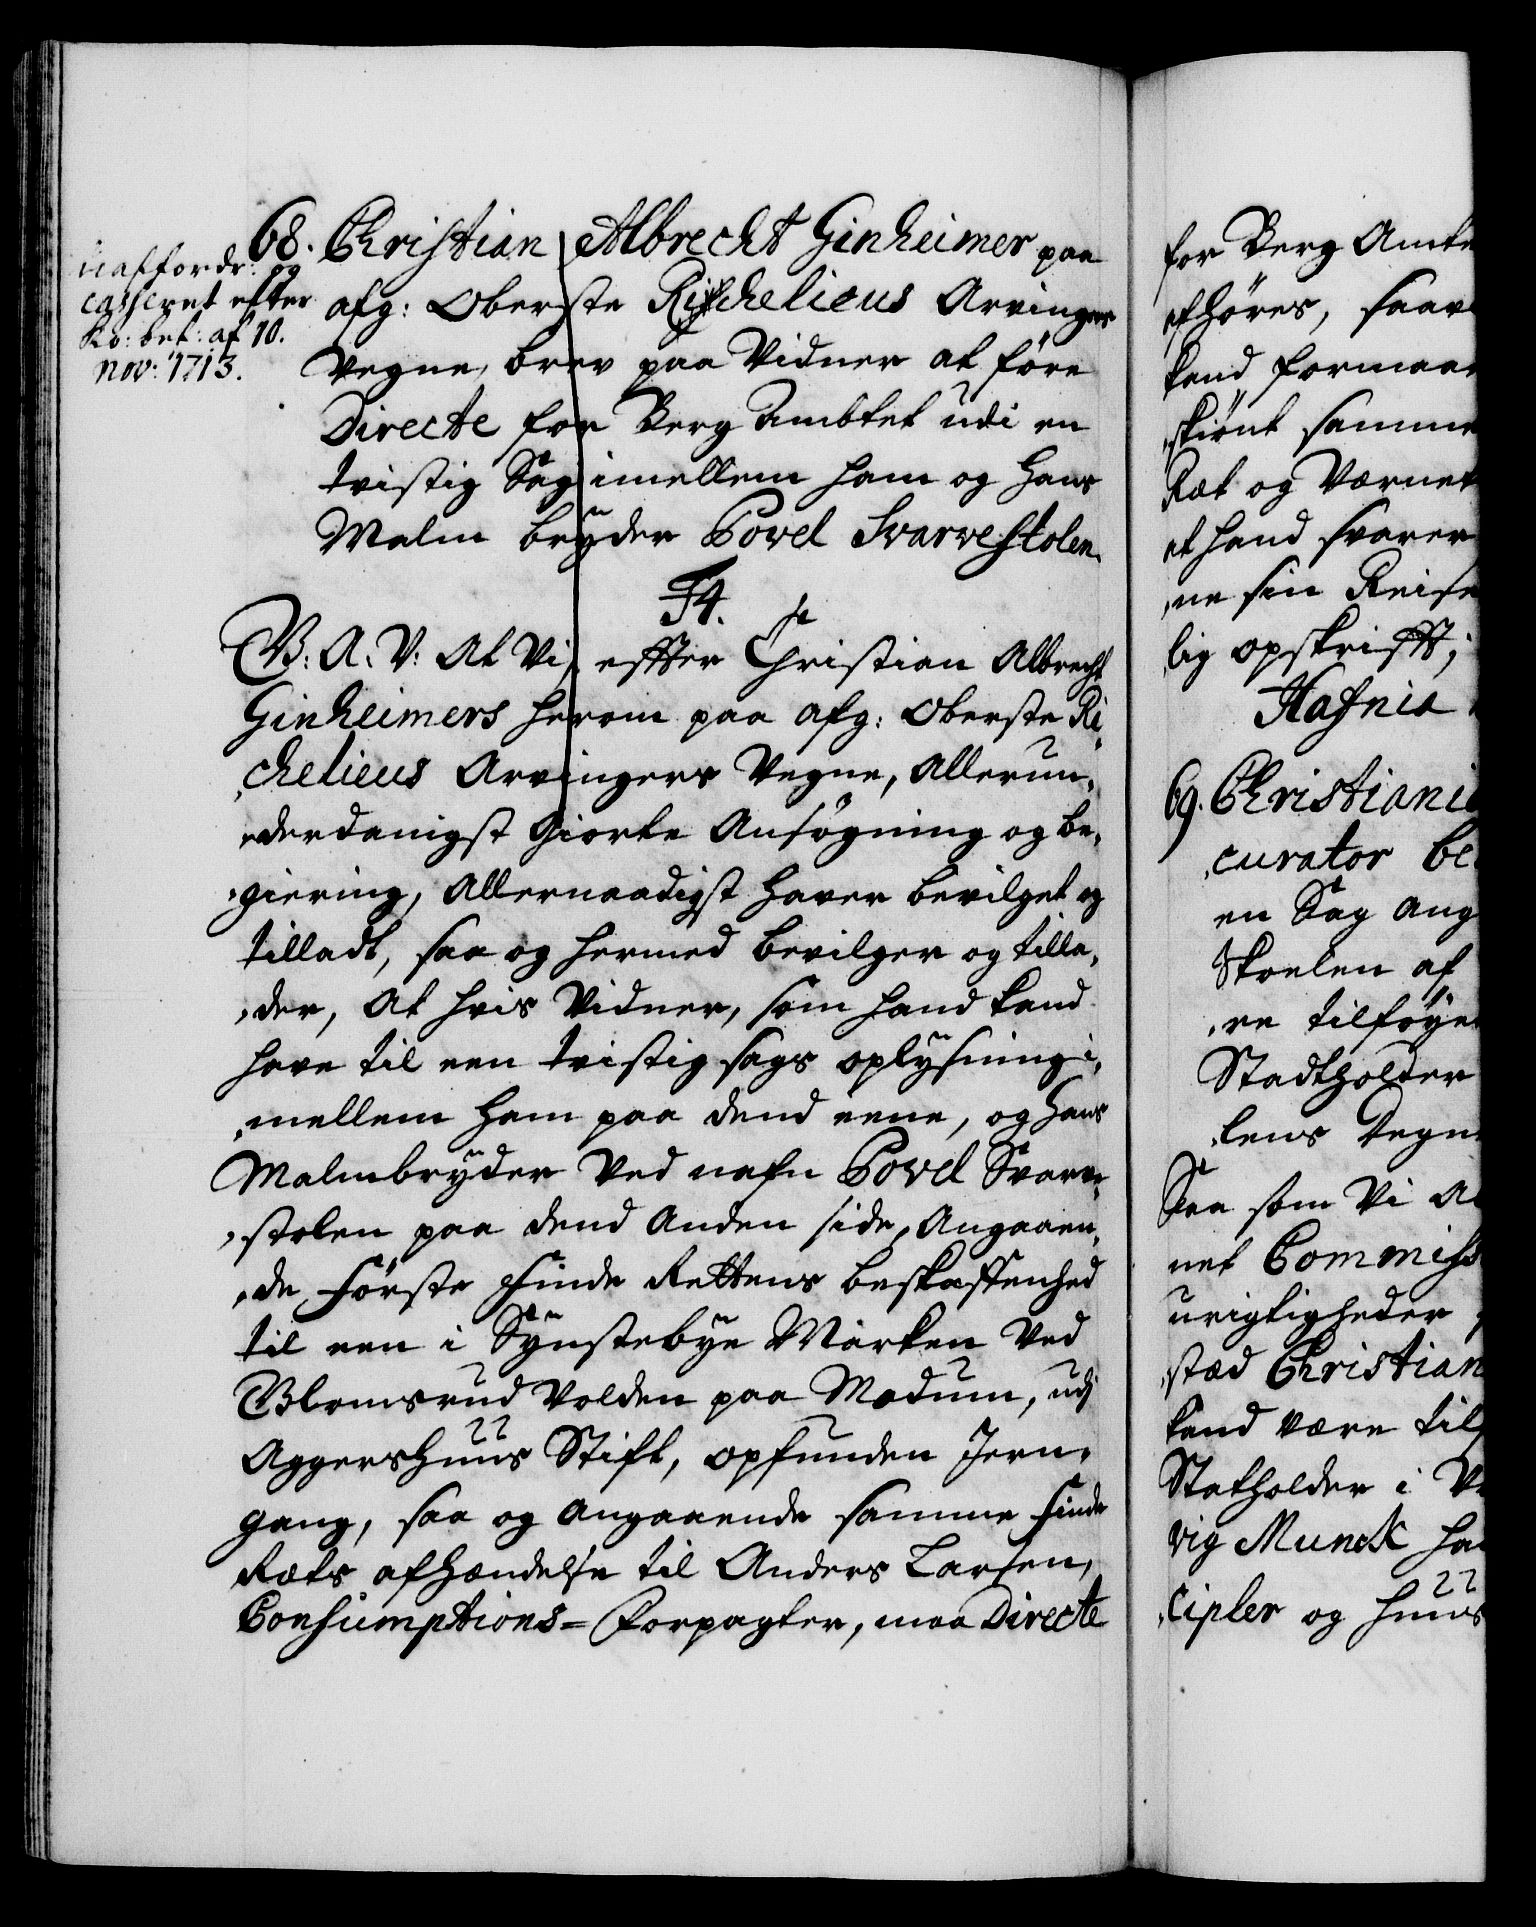 uaffordr: og
casseret efter
Ko: bef: af 10.
nov: 1713.
68. Christian Albrecht Ginheimer paa
afg: Oberste Richelieus Arvingers
Vegne, brev paa Vidner at føre
Directe for Berg Ambtet udi en
tvistig Sag imellem ham og hans
Malm bryder Povel Svarvestolen.
F4.
V: A: V: At Vi, effter Christian Albrecht
Ginheimers herom paa afg: Oberste Ri„
„chelieus Arvingers Vegne, Allerun„
„derdanigst Giorte Ansøgning og be„
„giering, Allernaadigst haver bevilget og
tilladt, saa og hermed bevilger og tilla„
„der, At hvis Vidner, som hand kand
have til een tvistig sags oplysning i„
„mellem ham paa dend eene, og hans
Malmbryder Ved nafn Povel Svarve„
„stolen paa dend Anden side, Angaaen„
„de Første Finde Rettens beskaffenhed
til een i Synstebye Marken Ved
Blomsrud Volden paa Modum, udj
Aggershuus Stift, opfunden Jern„
gang, saa og Angaaende samme Finde
Rets afhændelse til Anders Larsen,
Consumptions= Forpagter, maa Directe
for Berg Amte
afhøres, saav
kand formaa
„skiønt samme
Ret og Værnet
at hand svarer
„ne sin Reise
lig opskrifft;
Hafnia
69. Christiania
„curator be
en Sag ang
Skoelen af
„re tilføye
Stadtholder
„lens Vegn
Saa som Vi A
net Commiss
urigtigheder
„stæd Christian
kand være til
Statholder i
vig Munck ha
„cipler og huus